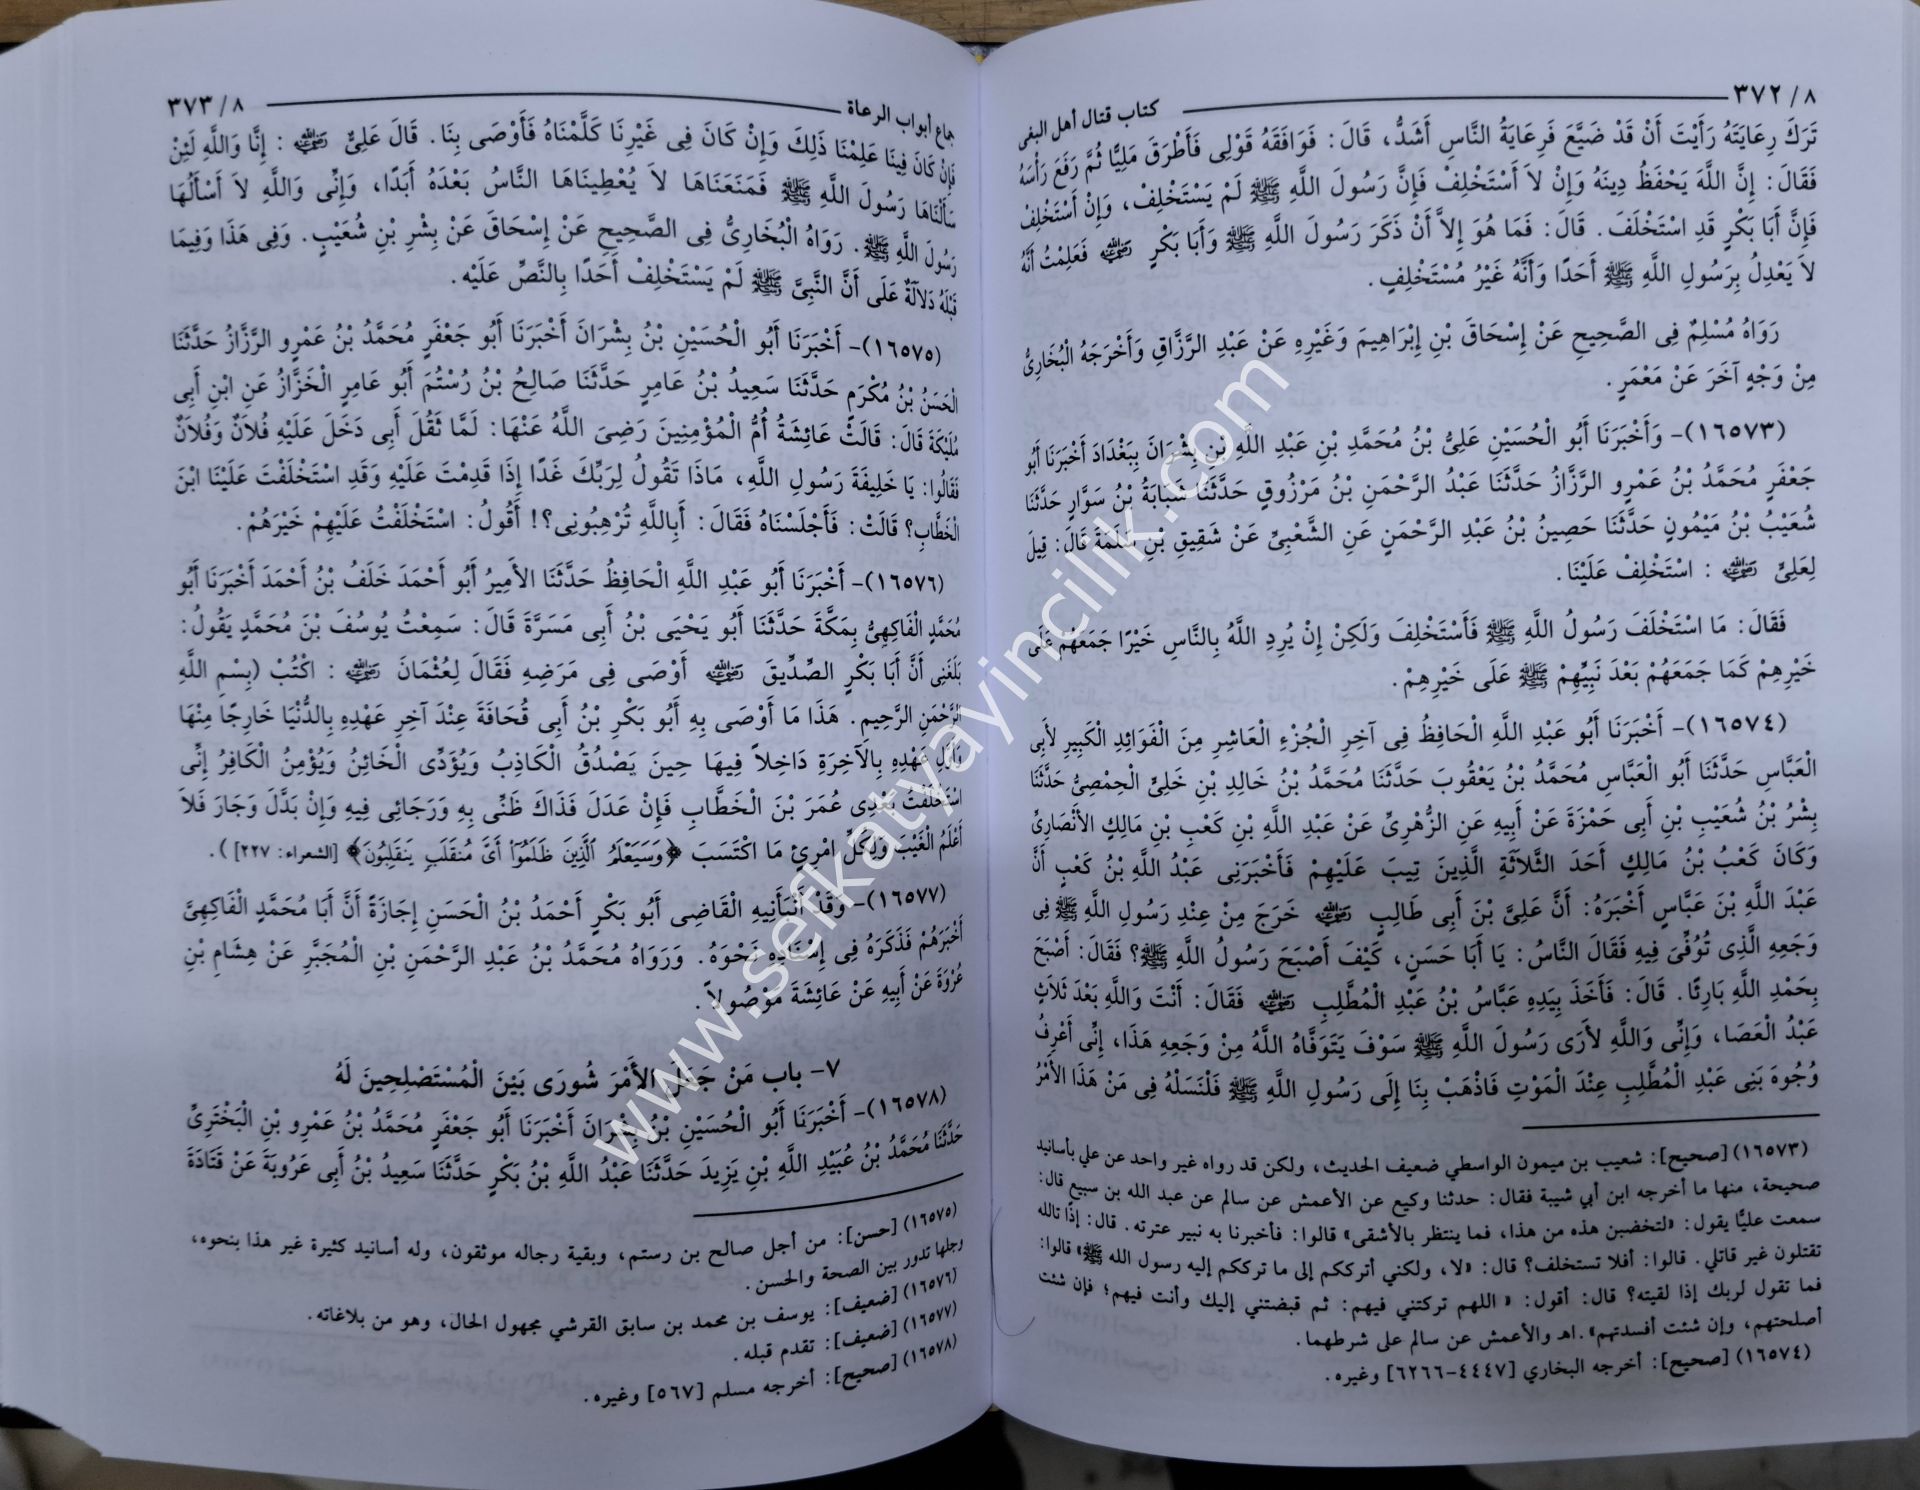 ٣٧٢/٨ كتاب قتال أهل البغى
تَرَكَ رِعَايَتَهُ رَأَيْتَ أَنْ قَدْ ضَيَّعَ فَرِعَايَةُ النَّاسِ أَشَدُّ، قَالَ: فَوَافَقَهُ قَوْلِى فَأَطْرَقَ مَلِيًّا ثُمَّ رَفَعَ رَأْسَهُ
فَقَالَ: إِنَّ اللَّهَ يَحْفَظُ دِينَهُ وَإِنْ لاَ أَسْتَخْلِفْ فَإِنَّ رَسُولَ اللَّهِ ﷺ لَمْ يَسْتَخْلِفْ، وَإِنْ أَسْتَخْلِفْ
فَإِنَّ أَبَا بَكْرٍ قَدِ اسْتَخْلَفَ. قَالَ: فَمَا هُوَ إِلاَّ أَنْ ذَكَرَ رَسُولَ اللَّهِ ﷺ وَأَبَا بَكْرٍ رضي الله عنه فَعَلِمْتُ أَنَّهُ
لاَ يَعْدِلُ بِرَسُولِ اللَّهِ ﷺ أَحَدًا وَأَنَّهُ غَيْرُ مُسْتَخْلِفٍ.
رَوَاهُ مُسْلِمٌ فِى الصَّحِيحِ عَنْ إِسْحَاقَ بْنِ إِبْرَاهِيمَ وَغَيْرِهِ عَنْ عَبْدِ الرَّزَّاقِ وَأَخْرَجَهُ الْبُخَارِىُّ
مِنْ وَجْهٍ آخَرَ عَنْ مَعْمَرٍ.
(١٦٥٧٣)- وَأَخْبَرَنَا أَبُو الْحُسَيْنِ عَلِىُّ بْنُ مُحَمَّدِ بْنِ عَبْدِ اللَّهِ بْنِ بِشْرَانَ بِبَغْدَادَ أَخْبَرَنَا أَبُو
جَعْفَرٍ مُحَمَّدُ بْنُ عَمْرٍو الرَّزَّازُ حَدَّثَنَا عَبْدُ الرَّحْمَنِ بْنُ مَرْزُوقٍ حَدَّثَنَا شَبَابَةُ بْنُ سَوَّارٍ حَدَّثَنَا
شُعَيْبُ بْنُ مَيْمُونٍ حَدَّثَنَا حَصِينُ بْنُ عَبْدِ الرَّحْمَنِ عَنِ الشَّعْبِىِّ عَنْ شَقِيقِ بْنِ سَلَمَةَ قَالَ: قِيلَ
لِعَلِىٍّ رضي الله عنه : اسْتَخْلِفْ عَلَيْنَا.
فَقَالَ: مَا اسْتَخْلَفَ رَسُولُ اللَّهِ ﷺ فَأَسْتَخْلِفَ وَلَكِنْ إِنْ يُرِدِ اللَّهُ بِالنَّاسِ خَيْرًا جَمَعَهُمْ عَلَى
خَيْرِهِمْ كَمَا جَمَعَهُمْ بَعْدَ نَبِيِّهِمْ ﷺ عَلَى خَيْرِهِمْ.
(١٦٥٧٤)- أَخْبَرَنَا أَبُو عَبْدِ اللَّهِ الْحَافِظُ فِى آخِرِ الْجُزْءِ الْعَاشِرِ مِنَ الْفَوَائِدِ الْكَبِيرِ لأَبِى
الْعَبَّاسِ حَدَّثَنَا أَبُو الْعَبَّاسِ مُحَمَّدُ بْنُ يَعْقُوبَ حَدَّثَنَا مُحَمَّدُ بْنُ خَالِدِ بْنِ خَلِىٍّ الْحِمْصِىُّ حَدَّثَنَا
بِشْرُ بْنُ شُعَيْبِ بْنِ أَبِى حَمْزَةَ عَنْ أَبِيهِ عَنِ الزُّهْرِىِّ عَنْ عَبْدِ اللَّهِ بْنِ كَعْبِ بْنِ مَالِكٍ الأَنْصَارِىِّ
وَكَانَ كَعْبُ بْنُ مَالِكٍ أَحَدَ الثَّلاَثَةِ الَّذِينَ تِيبَ عَلَيْهِمْ فَأَخْبَرَنِى عَبْدُ اللَّهِ بْنُ كَعْبٍ أَنَّ
عَبْدَ اللَّهِ بْنَ عَبَّاسٍ أَخْبَرَهُ: أَنَّ عَلِىَّ بْنَ أَبِى طَالِبٍ رضي الله عنه خَرَجَ مِنْ عِنْدِ رَسُولِ اللَّهِ ﷺ فِى
وَجَعِهِ الَّذِى تُوُفِّىَ فِيهِ فَقَالَ النَّاسُ: يَا أَبَا حَسَنٍ، كَيْفَ أَصْبَحَ رَسُولُ اللَّهِ ﷺ؟ فَقَالَ: أَصْبَحَ
بِحَمْدِ اللَّهِ بَارِئًا. قَالَ: فَأَخَذَ بِيَدِهِ عَبَّاسُ بْنُ عَبْدِ الْمُطَّلِبِ رضي الله عنه فَقَالَ: أَنْتَ وَاللَّهِ بَعْدَ ثَلاَثٍ
عَبْدُ الْعَصَا، وَإِنِّى وَاللَّهِ لأَرَى رَسُولَ اللَّهِ ﷺ سَوْفَ يَتَوَفَّاهُ اللَّهُ مِنْ وَجَعِهِ هَذَا، إِنِّى أَعْرِفُ
وُجُوهَ بَنِى عَبْدِ الْمُطَّلِبِ عِنْدَ الْمَوْتِ فَاذْهَبْ بِنَا إِلَى رَسُولِ اللَّهِ ﷺ فَلْنَسَلْهُ فِى مَنْ هَذَا الأَمْرُ
(١٦٥٧٣) [صحيح]: شعيب بن ميمون الواسطي ضعيف الحديث، ولكن قد رواه غير واحد عن علي بأسانيد
صحيحة، منها ما أخرجه ابن أبي شيبة فقال: حدثنا وكيع عن الأعمش عن سالم عن عبد الله بن سبيع قال:
سمعت عليًّا يقول: «لتخضبن هذه من هذا، فما ينتظر بالأشقى» قالوا: فأخبرنا به نبير عترته. قال: إذًا تالله
تقتلون غير قاتلي. قالوا: أفلا تستخلف؟ قال: «لا، ولكني أترككم إلى ما ترككم إليه رسول الله ﷺ» قالوا:
فما تقول لربك إذا لقيته؟ قال: أقول: « اللهم تركتني فيهم: ثم قبضتني إليك وأنت فيهم؛ فإن شئت
أصلحتهم، وإن شئت أفسدتهم». اهـ والأعمش عن سالم على شرطهما.
(١٦٥٧٤) [صحيح]: أخرجه البخاري [٤٤٤٧-٦٢٦٦] وغيره.
جماع أبواب الرعاة ٣٧٣/٨
فَإِنْ كَانَ فِينَا عَلِمْنَا ذَلِكَ وَإِنْ كَانَ فِى غَيْرِنَا كَلَّمْنَاهُ فَأَوْصَى بِنَا. قَالَ عَلِىٌّ رضي الله عنه : إِنَّا وَاللَّهِ لَئِنْ
سَأَلْنَاهَا رَسُولَ اللَّهِ ﷺ فَمَنَعَنَاهَا لاَ يُعْطِينَاهَا النَّاسُ بَعْدَهُ أَبَدًا، وَإِنِّى وَاللَّهِ لاَ أَسْأَلُهَا
رَسُولَ اللَّهِ ﷺ. رَوَاهُ الْبُخَارِىُّ فِى الصَّحِيحِ عَنْ إِسْحَاقَ عَنْ بِشْرِ بْنِ شُعَيْبٍ. وَفِى هَذَا وَفِيمَا
قَبْلَهُ دَلاَلَةٌ عَلَى أَنَّ النَّبِىَّ ﷺ لَمْ يَسْتَخْلِفْ أَحَدًا بِالنَّصِّ عَلَيْهِ.
(١٦٥٧٥)- أَخْبَرَنَا أَبُو الْحُسَيْنِ بْنُ بِشْرَانَ أَخْبَرَنَا أَبُو جَعْفَرٍ مُحَمَّدُ بْنُ عَمْرٍو الرَّزَّازُ حَدَّثَنَا
الْحَسَنُ بْنُ مُكْرَمٍ حَدَّثَنَا سَعِيدُ بْنُ عَامِرٍ حَدَّثَنَا صَالِحُ بْنُ رُسْتُمَ أَبُو عَامِرٍ الْخَزَّازُ عَنِ ابْنِ أَبِى
مُلَيْكَةَ قَالَ: قَالَتْ عَائِشَةُ أُمُّ الْمُؤْمِنِينَ رَضِىَ اللَّهُ عَنْهَا: لَمَّا ثَقُلَ أَبِى دَخَلَ عَلَيْهِ فُلاَنٌ وَفُلاَنٌ
فَقَالُوا: يَا خَلِيفَةَ رَسُولِ اللَّهِ، مَاذَا تَقُولُ لِرَبِّكَ غَدًا إِذَا قَدِمْتَ عَلَيْهِ وَقَدِ اسْتَخْلَفْتَ عَلَيْنَا ابْنَ
الْخَطَّابِ؟ قَالَتْ: فَأَجْلَسْنَاهُ فَقَالَ: أَبِاللَّهِ تُرْهِبُونِى؟! أَقُولُ: اسْتَخْلَفْتُ عَلَيْهِمْ خَيْرَهُمْ.
(١٦٥٧٦)- أَخْبَرَنَا أَبُو عَبْدِ اللَّهِ الْحَافِظُ حَدَّثَنَا الأَمِيرُ أَبُو أَحْمَدَ خَلَفُ بْنُ أَحْمَدَ أَخْبَرَنَا أَبُو
مُحَمَّدٍ الْفَاكِهِىُّ بِمَكَّةَ حَدَّثَنَا أَبُو يَحْيَى بْنُ أَبِى مَسَرَّةَ قَالَ: سَمِعْتُ يُوسُفَ بْنَ مُحَمَّدٍ يَقُولُ:
بَلَغَنِى أَنَّ أَبَا بَكْرٍ الصِّدِّيقَ رضي الله عنه أَوْصَى فِى مَرَضِهِ فَقَالَ لِعُثْمَانَ رضي الله عنه : اكْتُبْ (بِسْمِ اللَّهِ
الرَّحْمَنِ الرَّحِيمِ. هَذَا مَا أَوْصَى بِهِ أَبُو بَكْرِ بْنُ أَبِى قُحَافَةَ عِنْدَ آخِرِ عَهْدِهِ بِالدُّنْيَا خَارِجًا مِنْهَا
وَأَوَّلِ عَهْدِهِ بِالآخِرَةِ دَاخِلاً فِيهَا حِينَ يَصْدُقُ الْكَاذِبُ وَيُؤَدِّى الْخَائِنُ وَيُؤْمِنُ الْكَافِرُ إِنِّى
اسْتَخْلَفْتُ بَعْدِى عُمَرَ بْنَ الْخَطَّابِ فَإِنْ عَدَلَ فَذَاكَ ظَنِّى بِهِ وَرَجَائِى فِيهِ وَإِنْ بَدَّلَ وَجَارَ فَلاَ
أَعْلَمُ الْغَيْبَ وَلِكُلِّ امْرِئٍ مَا اكْتَسَبَ ﴿وَسَيَعْلَمُ الَّذِينَ ظَلَمُوٓا۟ أَىَّ مُنقَلَبٍ يَنقَلِبُونَ﴾ [الشعراء: ٢٢٧]).
(١٦٥٧٧)- وَقَدْ أَنْبَأَنِيهِ الْقَاضِى أَبُو بَكْرٍ أَحْمَدُ بْنُ الْحَسَنِ إِجَازَةً أَنَّ أَبَا مُحَمَّدٍ الْفَاكِهِىَّ
أَخْبَرَهُمْ فَذَكَرَهُ فِى إِسْنَادِهِ نَحْوَهُ. وَرَوَاهُ مُحَمَّدُ بْنُ عَبْدِ الرَّحْمَنِ بْنِ الْمُجَبَّرِ عَنْ هِشَامِ بْنِ
عُرْوَةَ عَنْ أَبِيهِ عَنْ عَائِشَةَ مَوْصُولاً.
٧- باب مَنْ جَعَلَ الأَمْرَ شُورَى بَيْنَ الْمُسْتَصْلِحِينَ لَهُ
(١٦٥٧٨)- أَخْبَرَنَا أَبُو الْحُسَيْنِ بْنُ بِشْرَانَ أَخْبَرَنَا أَبُو جَعْفَرٍ مُحَمَّدُ بْنُ عَمْرِو بْنِ الْبَخْتَرِىِّ
حَدَّثَنَا مُحَمَّدُ بْنُ عُبَيْدِ اللَّهِ بْنِ يَزِيدَ حَدَّثَنَا عَبْدُ اللَّهِ بْنُ بَكْرٍ حَدَّثَنَا سَعِيدُ بْنُ أَبِى عَرُوبَةَ عَنْ قَتَادَةَ
(١٦٥٧٥) [حسن]: من أجل صالح بن رستم، وبقية رجاله موثقون، وله أسانيد كثيرة غير هذا بنحوه،
وجلها تدور بين الصحة والحسن.
(١٦٥٧٦) [ضعيف]: يوسف بن محمد بن سابق القرشي مجهول الحال، وهو من بلاغاته.
(١٦٥٧٧) [ضعيف]: تقدم قبله.
(١٦٥٧٨) [صحيح]: أخرجه مسلم [٥٦٧] وغيره.
www.sefkatyayincilik.com